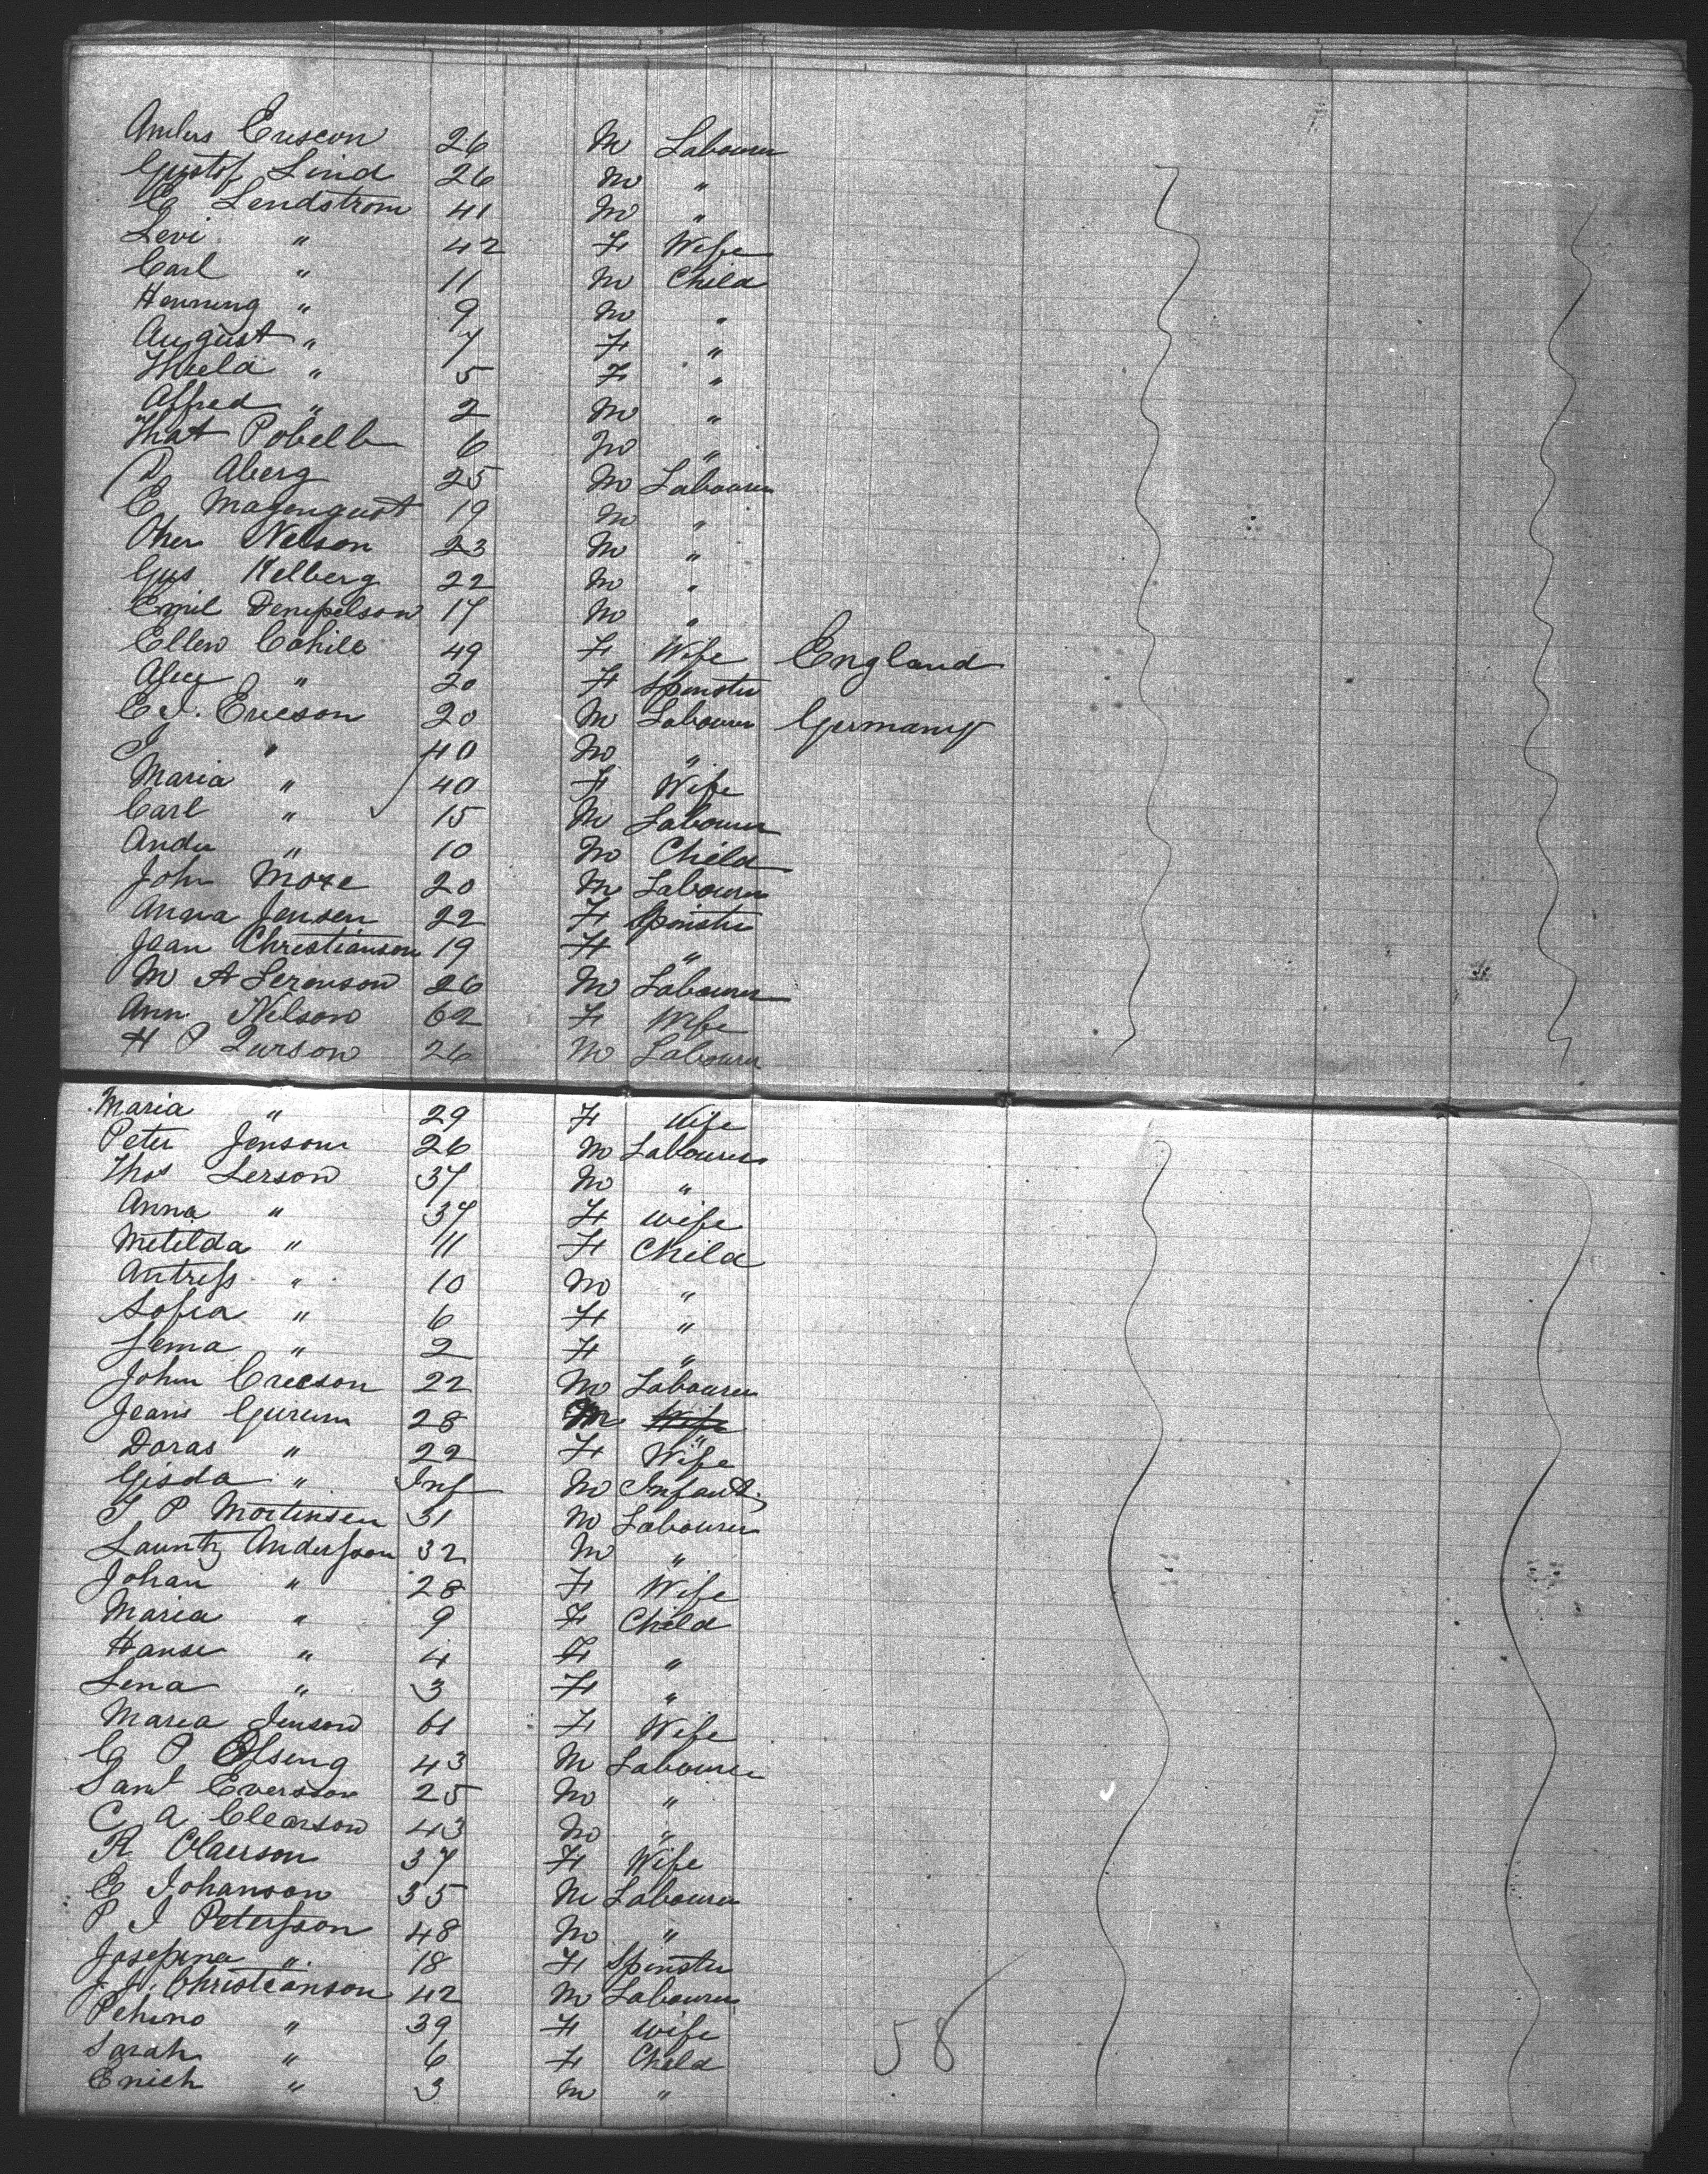 Anders Ericson 26 M Labourer
Gustof Lind 26 M "
C Lendstrom 41 M "
Levi " 42 F Wife
Carl " 11 M Child
Henning " 9 M "
August " 7 F "
Thula " 5 F "
Alfred " 2 M "
That Pobell 6 M "
Aberg 25 M Labourer
C Magenqust 19 M "
Oher Nelson 23 M "
Gus Kelberg 22 M "
Emil 17 M "
Ellen Cahill 49 F Wife England
Alice " 20 F Spinster
C J. Ericson 20 M Labourer Germany
J " 40 M "
Maria " 40 F Wife
Carl " 15 M Labourer
Ander " 10 M Child
John More 20 M Labourer
Anna Jensen 22 F Spinster
Jean Christianson 19 F "
M A Serenson 26 M Labourer
Ann Nelson 62 F Wife
H P Lurson 26 M Labourer
Maria " 29 F Wife
Peter Jenson 26 M Labourer
Thos Lerson 37 M "
Anna " 37 F Wife
Metilda " 11 F Child
Antress " 10 M "
Sofia " 6 F "
Lema " 2 F "
John Ericson 22 M Labourer
Jeans Gurum 28 M Wife "
Doras " 22 F Wife
Gisda " Inf M Infant
J P Mortinsen 31 M Labourer
Launtz Andersson 32 M "
Johan " 28 F Wife
Maria " 9 F Child
Hanse " 4 F "
Lena " 3 F "
Maria Jenson 61 F Wife
C P 43 M Labourer
Saml Everson 25 M "
C A Clearson 43 M "
R Claerson 37 F Wife
C Johanson 35 M Labourer
P J Petersson 48 M "
Josepina " 18 F Spinster
J. J. Christianson 42 M Labourer
Pehino " 39 F Wife
Sarah " 6 F Child
Enich " 3 M "
58